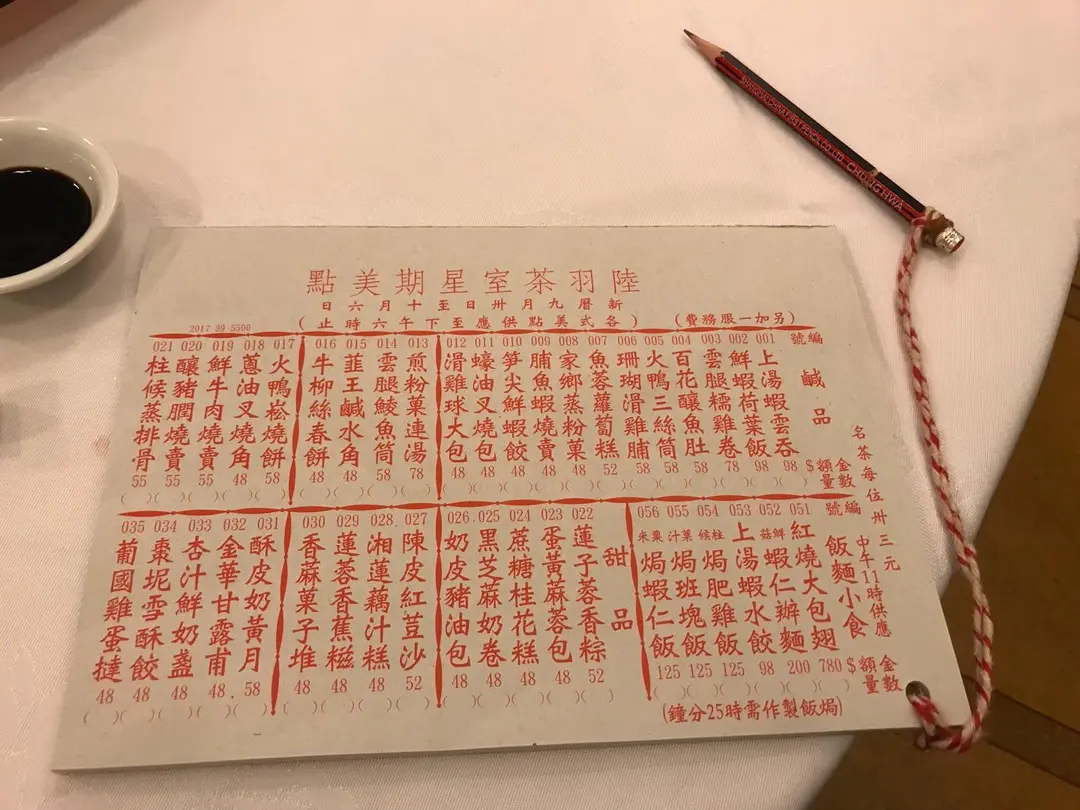 陸羽茶室星期美點
新曆九月卅日至十月六日
(各式美點供應至下午六時止)
(另加一服務費)
2017 39 5500
名茶每位卅三元
編號 鹹品 金額 $ 數量
001 上湯蝦雲吞 98 ( )
002 鮮蝦荷葉飯 98 ( )
003 雲腿糯雞卷 78 ( )
004 百花釀魚肚 58 ( )
005 火鴨三絲筒 58 ( )
006 珊瑚滑雞脯 58 ( )
007 魚蓉蘿蔔糕 52 ( )
008 家鄉蒸粉菓 48 ( )
009 脯魚蝦燒賣 48 ( )
010 筍尖鮮蝦餃 48 ( )
011 蠔油叉燒包 48 ( )
012 滑雞球大包 48 ( )
013 煎粉菓連湯 78 ( )
014 雲腿鯪魚筒 58 ( )
015 韮王鹹水角 48 ( )
016 牛柳絲春餅 48 ( )
017 火鴨崧燒餅 58 ( )
018 蔥油叉燒角 48 ( )
019 鮮牛肉燒賣 55 ( )
020 釀豬膶燒賣 55 ( )
021 柱候蒸排骨 55 ( )
中午11時供應
編號 飯麵小食 金額 $ 數量
051 紅燒大包翅 780 ( )
052 鮮菇蝦仁辦麵 200 ( )
053 上湯蝦水餃 98 ( )
054 柱候焗肥雞飯 125 ( )
055 菓汁焗班塊飯 125 ( )
056 粟米焗蝦仁飯 125 ( )
(焗飯製作需時25分鐘)
甜品
022 蓮子蓉香粽 52 ( )
023 蛋黃麻蓉包 48 ( )
024 蔗糖桂花糕 48 ( )
025 黑芝麻奶卷 48 ( )
026 奶皮豬油包 48 ( )
027 陳皮紅荳沙 52 ( )
028 湘蓮藕汁糕 48 ( )
029 蓮蓉香蕉糍 48 ( )
030 香蔴菓子堆 48 ( )
031 酥皮奶黃月 58 ( )
032 金華甘露甫 48 ( )
033 杏汁鮮奶盞 48 ( )
034 棗坭雪酥餃 48 ( )
035 葡國雞蛋撻 48 ( )
SHANGHAI CHINA FIRST PENCIL CO., LTD. CHUNG HWA